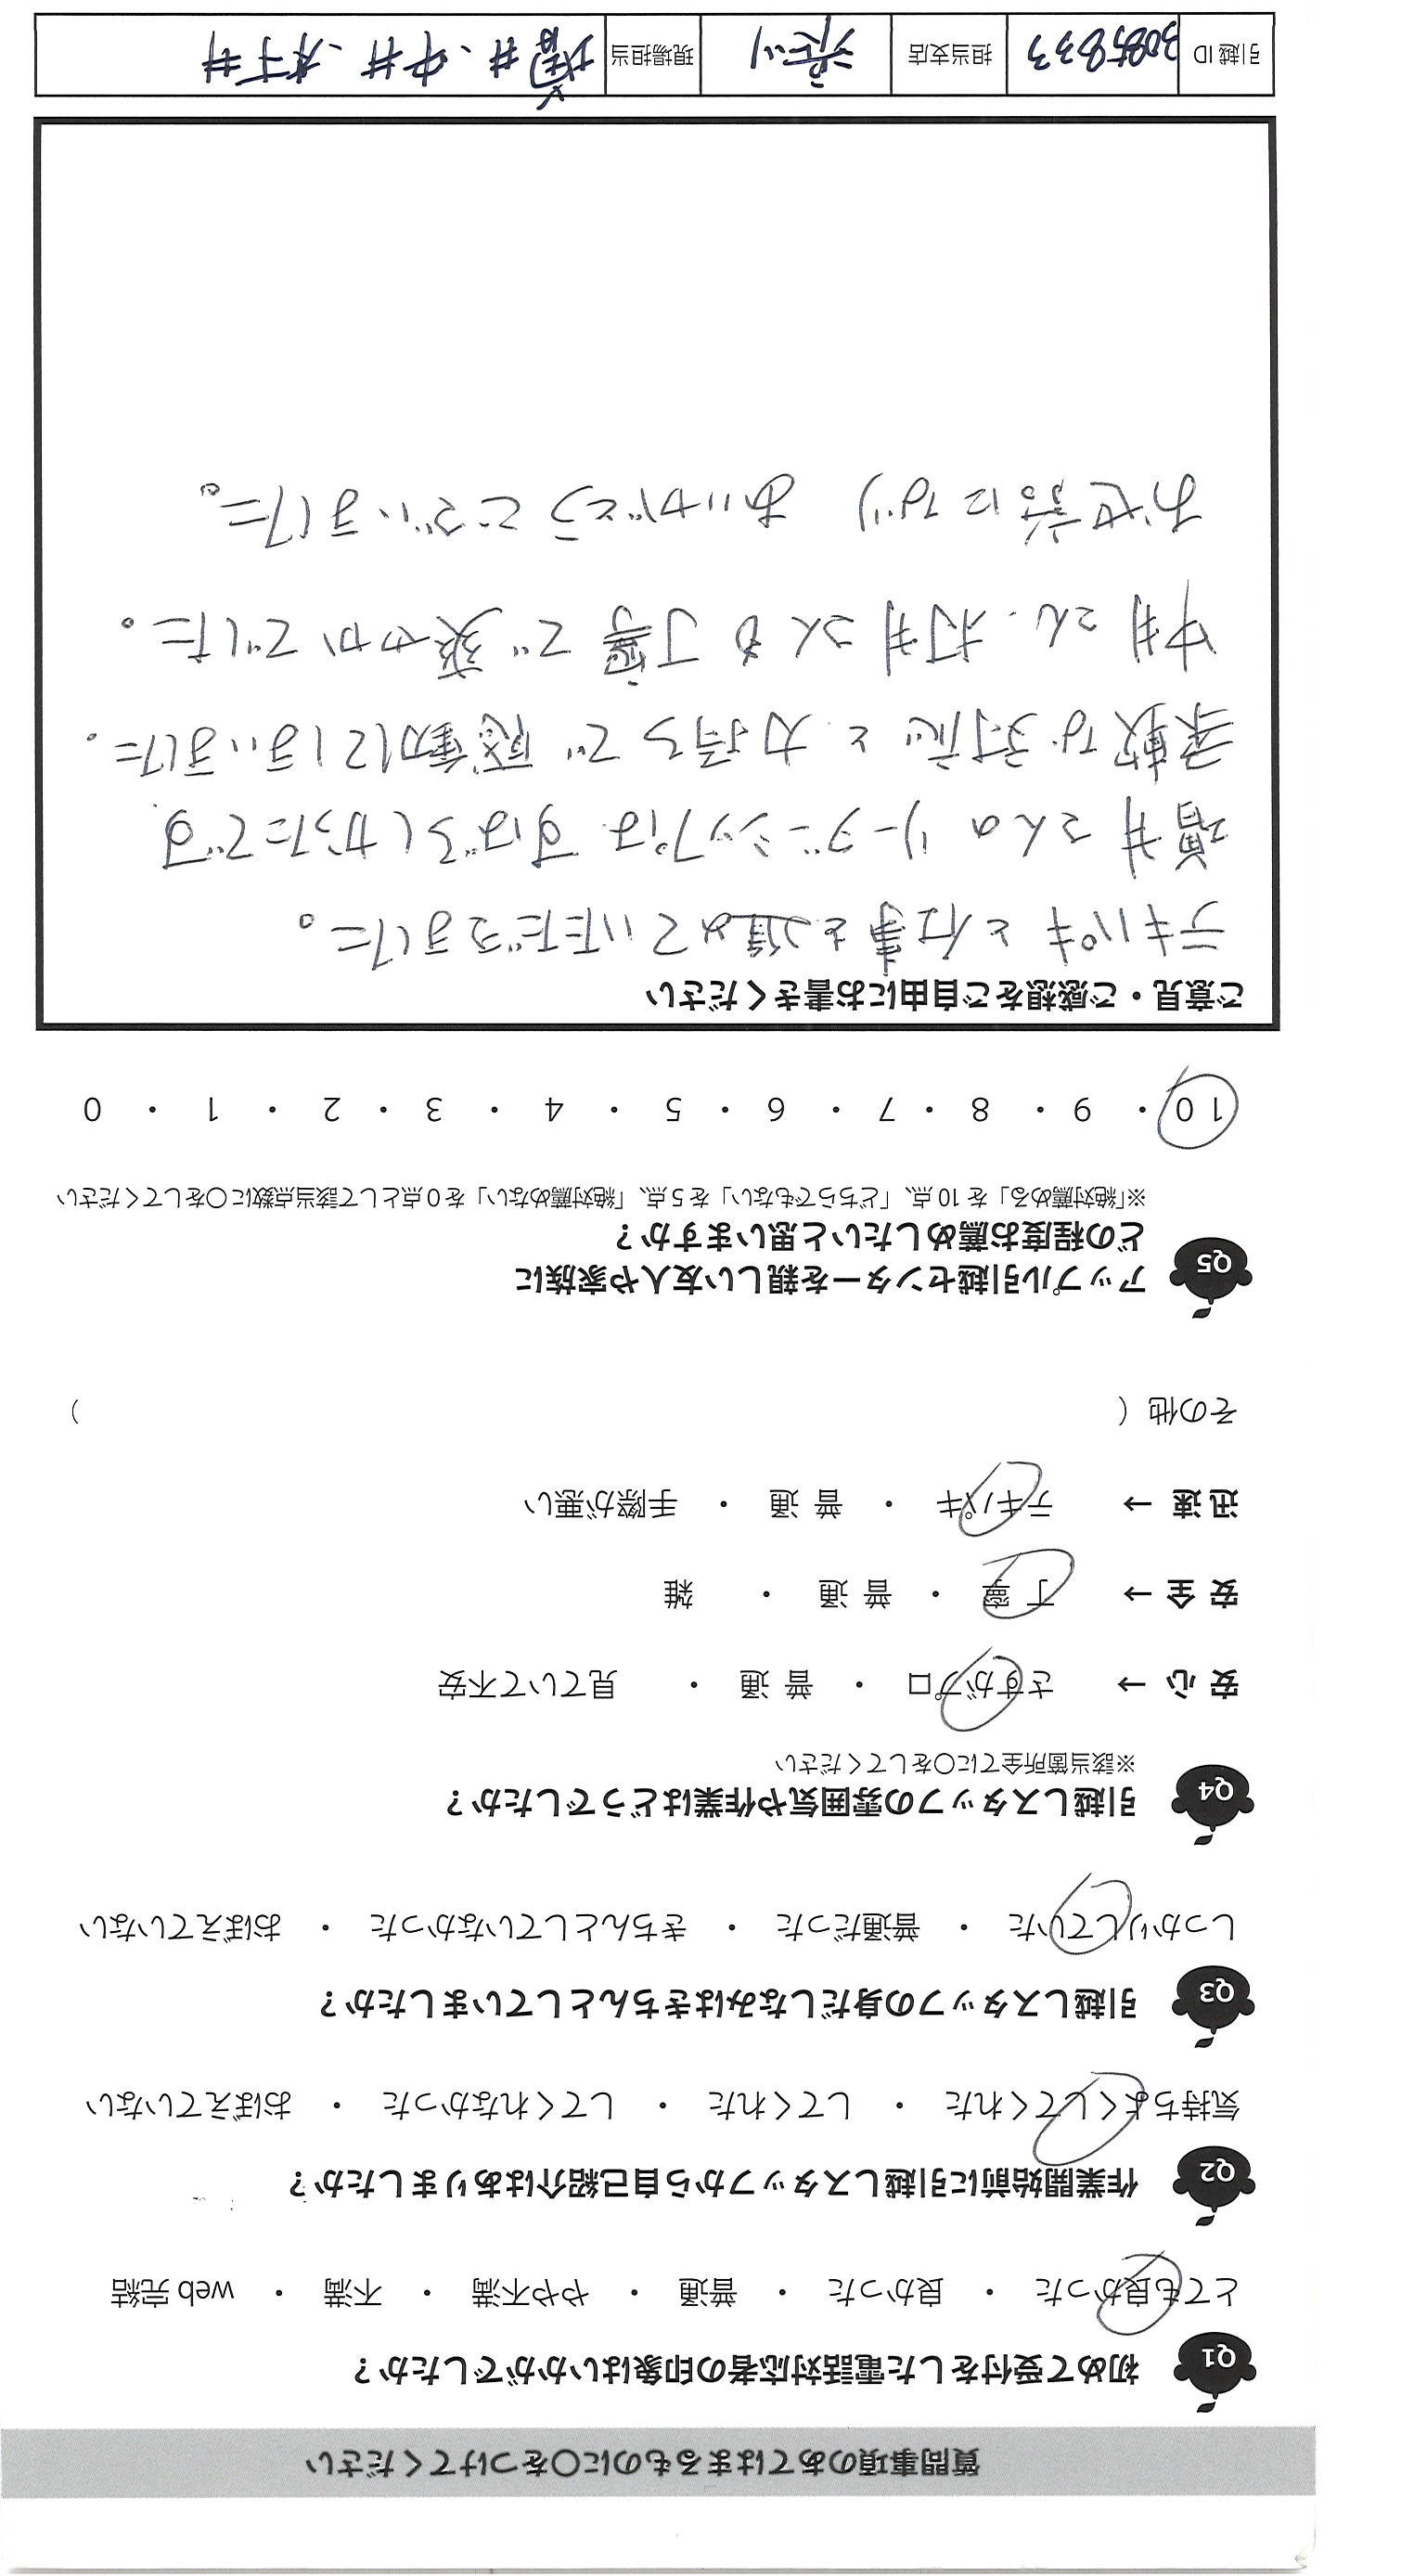 質問事項のあてはまるものに〇をつけてください
Q1 初めて受付をした電話対応者の印象はいかがでしたか？
とても良かった ・ 良かった ・ 普通 ・ やや不満 ・ 不満 ・ web 完結
Q2 作業開始前に引越しスタッフから自己紹介はありましたか？
気持ちよくしてくれた ・ してくれた ・ してくれなかった ・ おぼえていない
Q3 引越しスタッフの身だしなみはきちんとしていましたか？
しっかりしていた ・ 普通だった ・ きちんとしていなかった ・ おぼえていない
Q4 引越しスタッフの雰囲気や作業はどうでしたか？
※該当箇所全てに〇をしてください
安 心 → さすがプロ ・ 普 通 ・ 見ていて不安
安 全 → 丁 寧 ・ 普 通 ・ 雑
迅 速 → テキパキ ・ 普 通 ・ 手際が悪い
その他（ ）
Q5 アップル引越センターを親しい友人や家族に
どの程度お薦めしたいと思いますか？
※「絶対薦める」を 10 点、「どちらでもない」を 5 点、「絶対薦めない」を 0 点として該当点数に〇をしてください
10 ・ 9 ・ 8 ・ 7 ・ 6 ・ 5 ・ 4 ・ 3 ・ 2 ・ 1 ・ 0
ご意見・ご感想をご自由にお書きください
テキパキと仕事を進めていただきました。
増井さんのリーダーシップはすばらしかったです
柔軟な対応と力持ちで感動してしまいました。
中井さん、村井さんも丁寧で爽やかでした。
お世話になり ありがとうございました。
引越 ID 3085833 担当支店 現場担当 増井、中井、村井